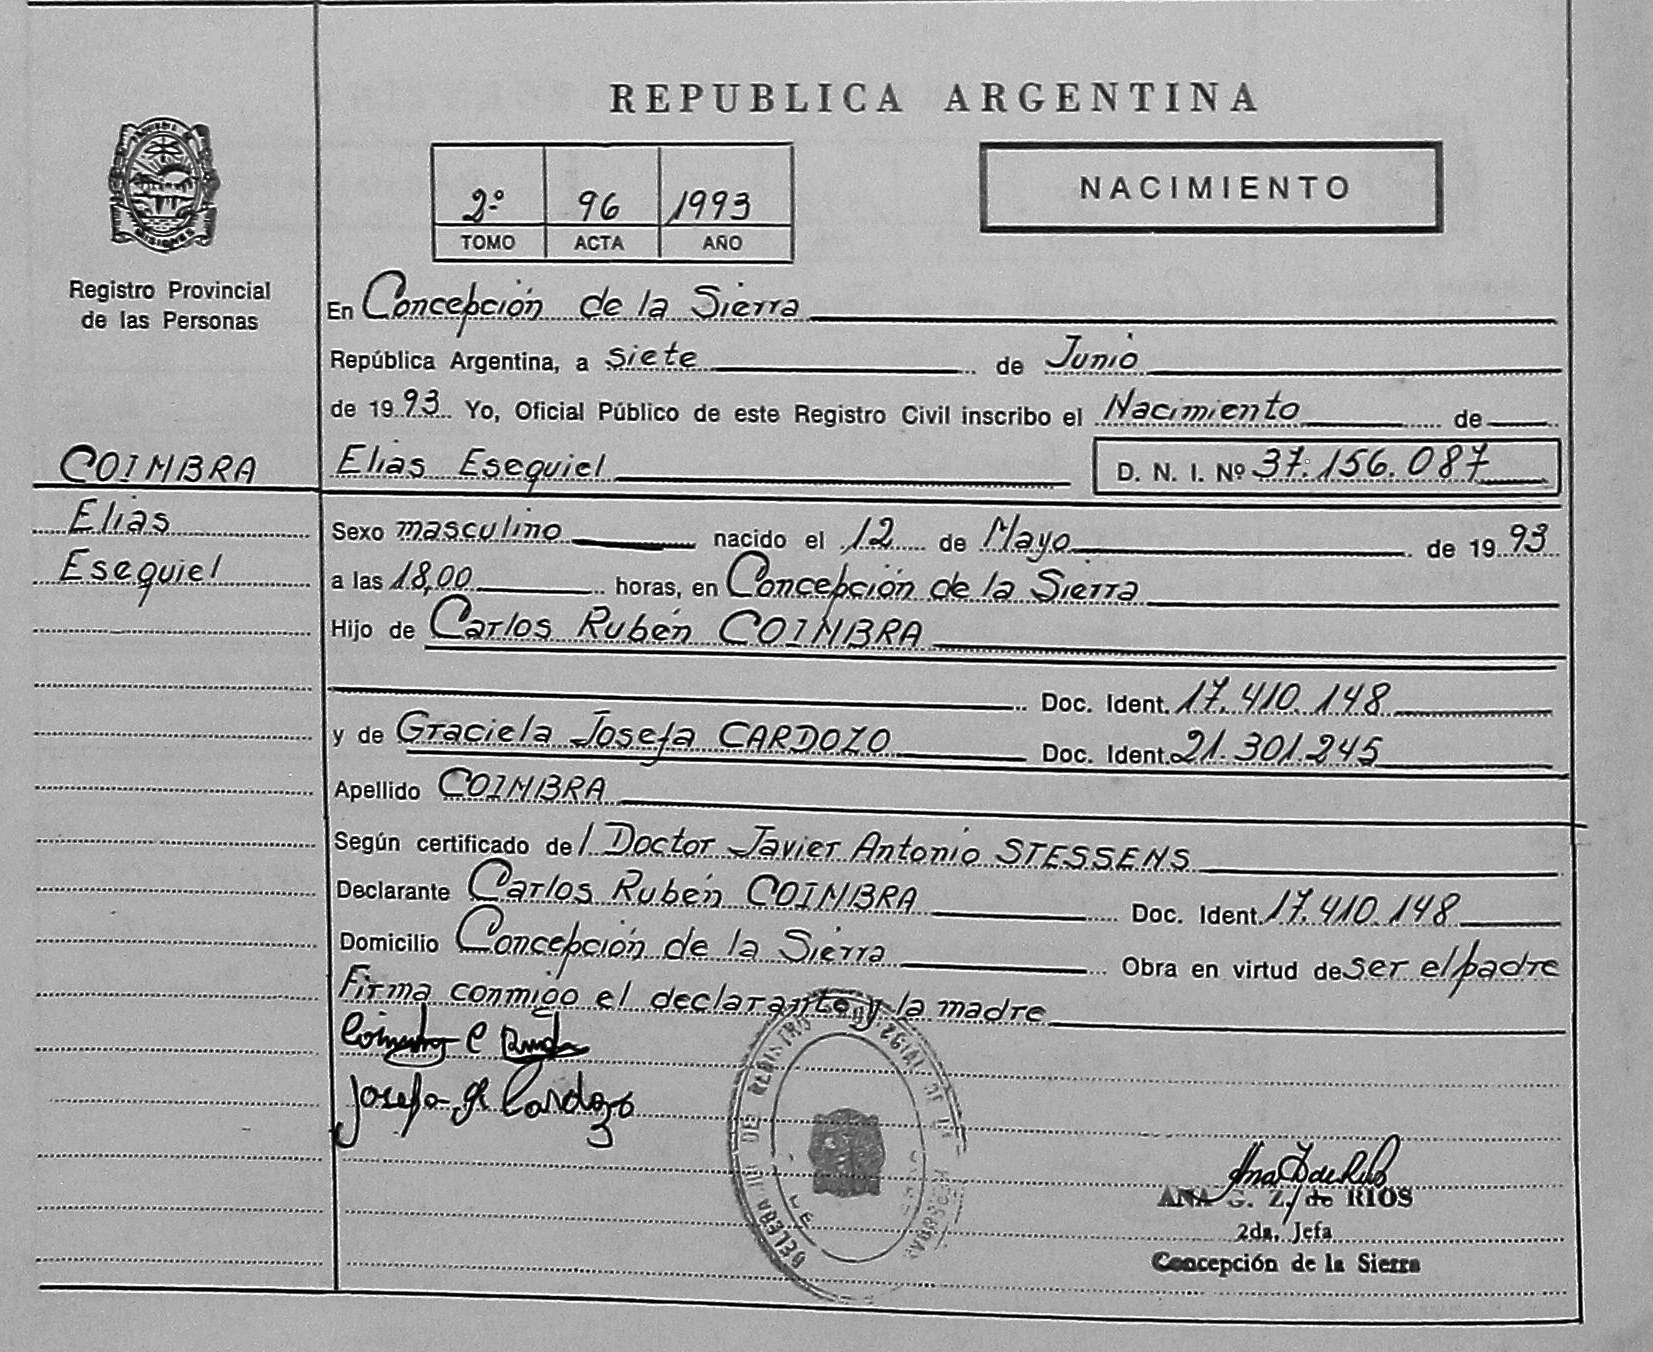 REPUBLICA ARGENTINA
2º 96 1993
TOMO ACTA AÑO
NACIMIENTO
MISIONES
Registro Provincial
de las Personas
En Concepción de la Sierra
República Argentina, a siete de Junio
de 1993 Yo, Oficial Público de este Registro Civil inscribo el Nacimiento de
COIMBRA
Elias
Esequiel
Elias Esequiel D. N. I. Nº 37.156.087
Sexo masculino nacido el 12 de Mayo de 1993
a las 18,00 horas, en Concepción de la Sierra
Hijo de Carlos Rubén COIMBRA
Doc. Ident. 17.410.148
y de Graciela Josefa CARDOZO Doc. Ident. 21.301.245
Apellido COIMBRA
Según certificado del Doctor Javier Antonio STESSENS
Declarante Carlos Rubén COIMBRA Doc. Ident. 17.410.148
Domicilio Concepción de la Sierra Obra en virtud de ser el padre
Firma conmigo el declarante y la madre
Josefa g Cardozo
ANA G. Z. de RIOS
2da. Jefa
Concepción de la Sierra